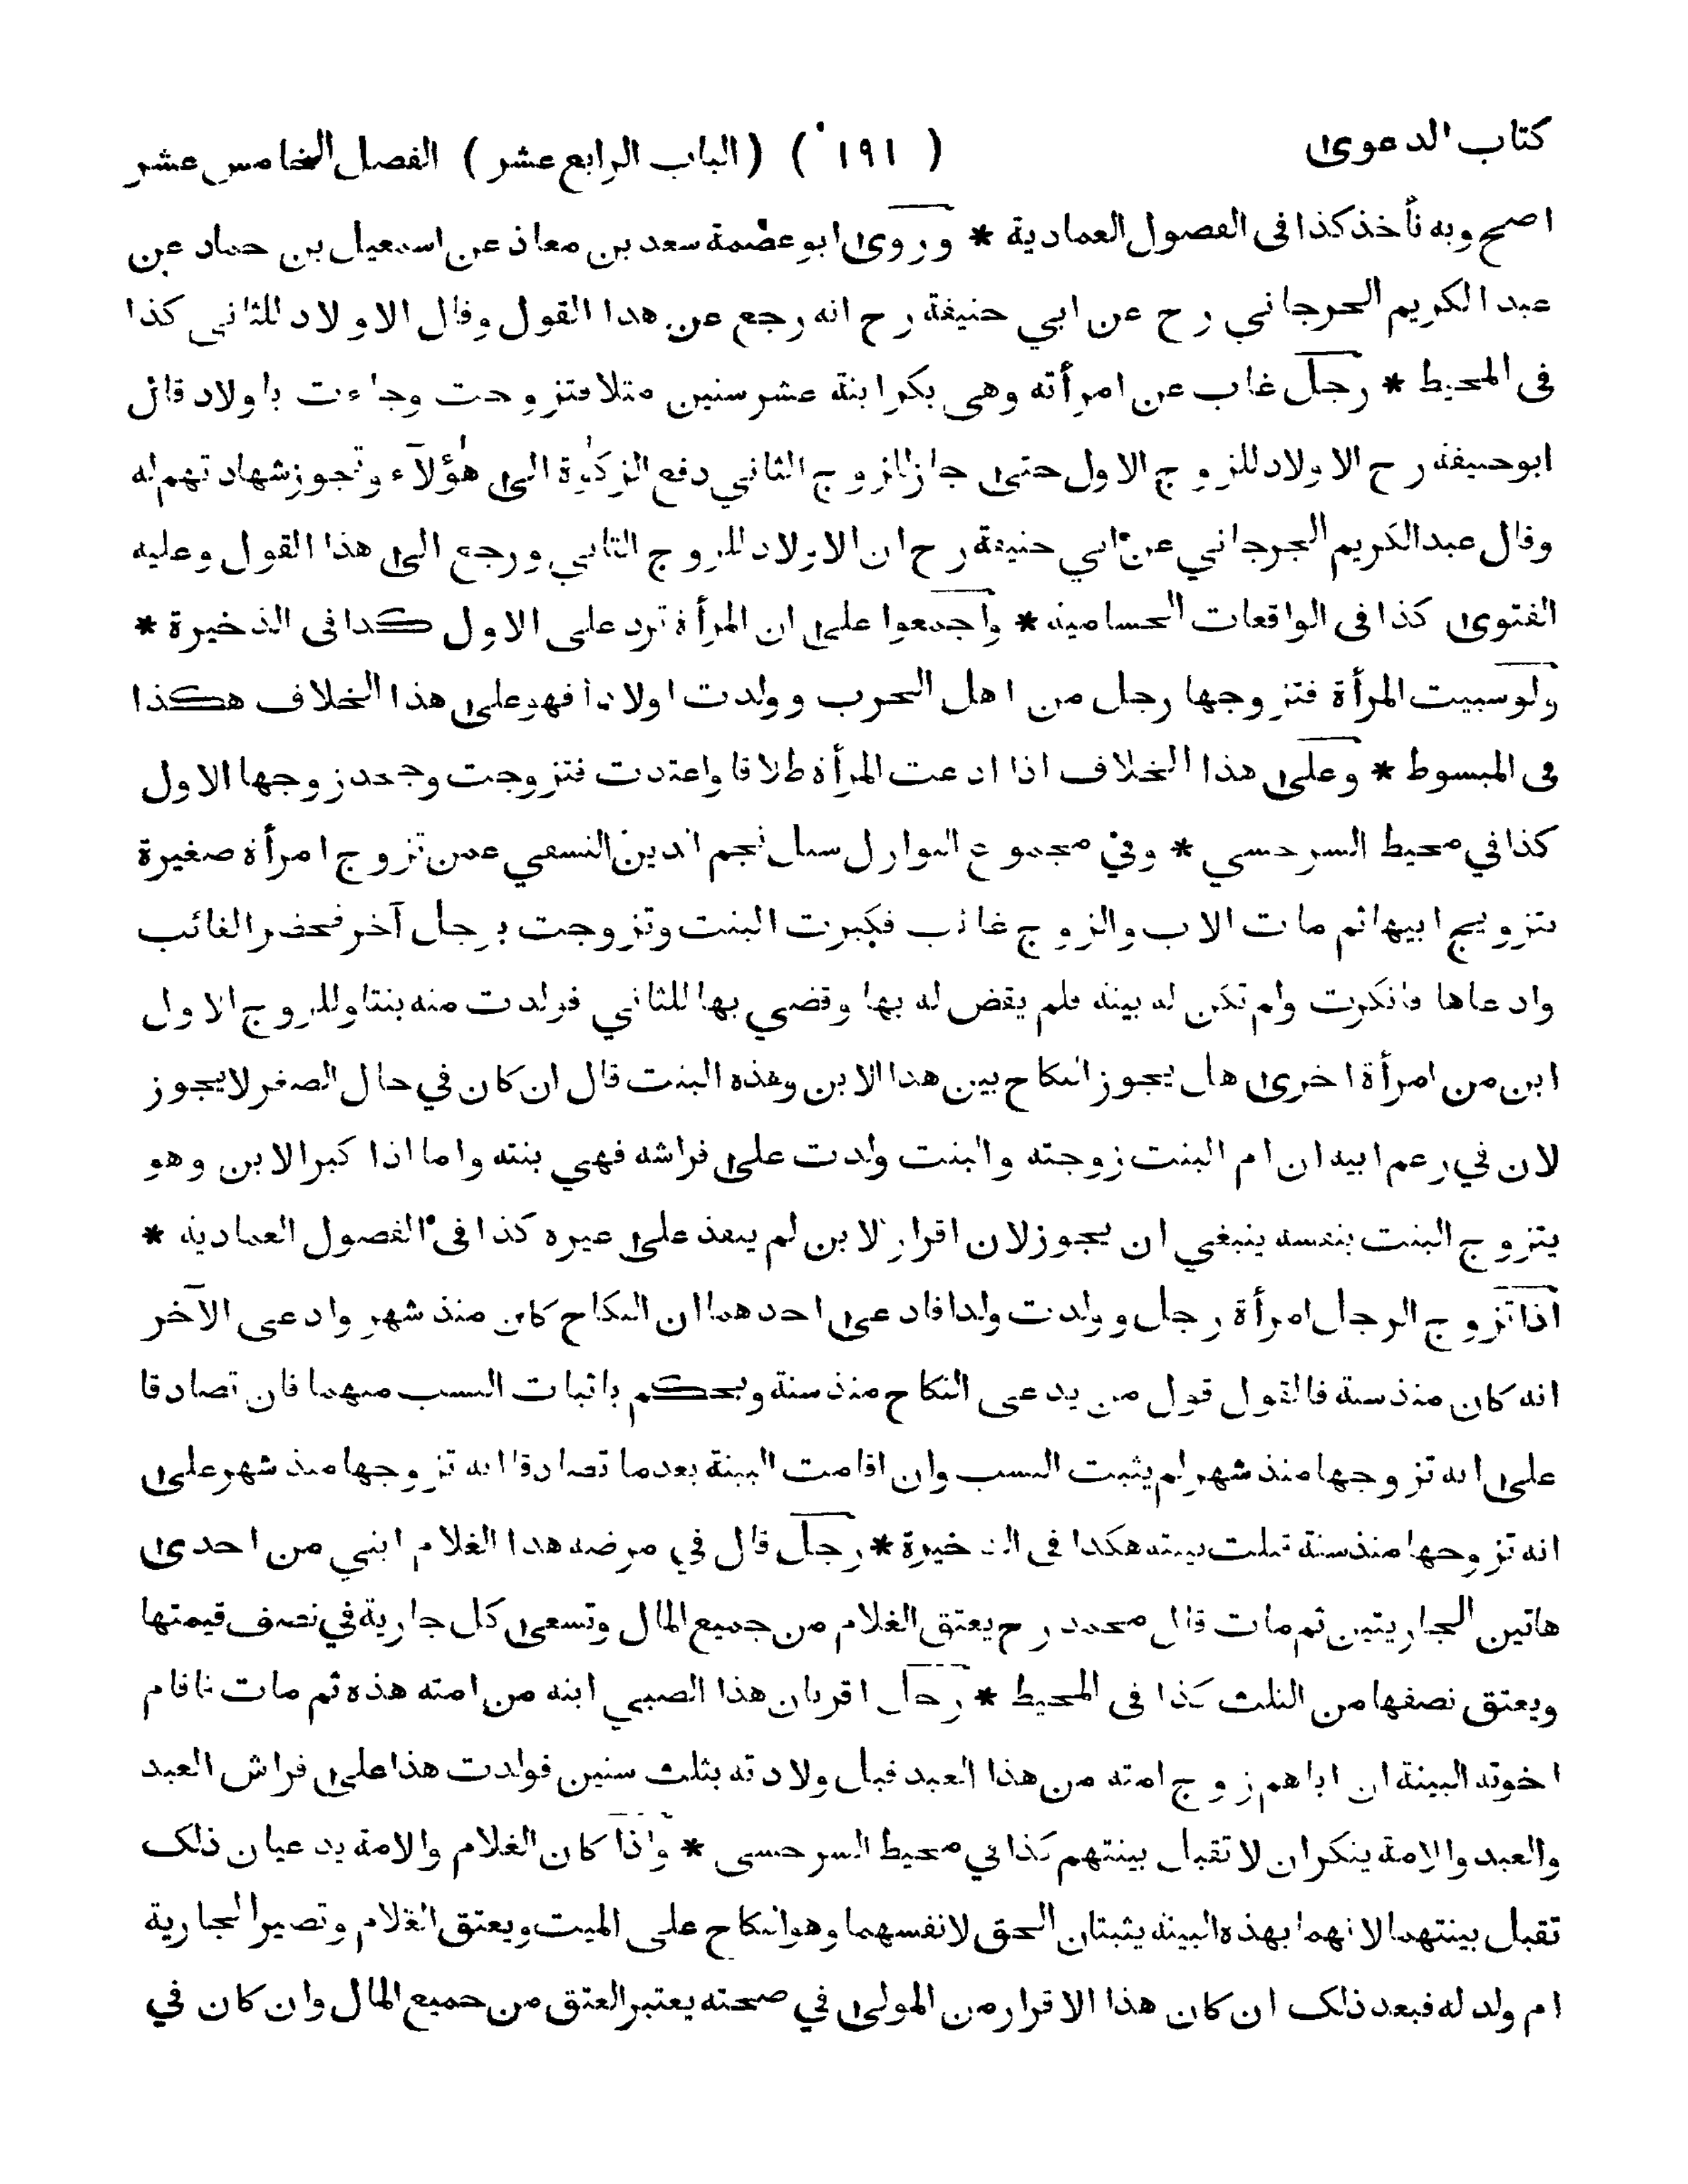 كتاب الدعوى ( ١٩١ ) ( الباب الرابع عشر ) الفصل الخامس عشر
اصح وبه نأخذ كذا فى الفصول العمادية * وروى ابو عصمة سعد بن معاذ عن اسمعيل بن حماد عن
عبد الكريم الجرجاني رح عن ابي حنيفة رح انه رجع عن هذا القول وقال الاولاد للثاني كذا
فى المحيط * رجل غاب عن امرأته وهى بكر ابنة عشر سنين مثلا فتزوجت وجاءت باولاد قال
ابوحنيفة رح الاولاد للزوج الاول حتى جاز للزوج الثاني دفع الزكوة الى هؤلآء وتجوز شهادتهم له
وقال عبد الكريم الجرجاني عن ابي حنيفة رح ان الاولاد للزوج الثاني ورجع الى هذا القول وعليه
الفتوى كذا فى الواقعات الحسامية * واجمعوا على ان المرأة ترد على الاول كذا فى الذخيرة *
ولو سبيت المرأة فتزوجها رجل من اهل الحرب وولدت اولادا فهو على هذا الخلاف هكذا
فى المبسوط * وعلى هذا الخلاف اذا ادعت المرأة طلاقا واعتدت فتزوجت وجحد زوجها الاول
كذا في محيط السرخسي * وفي مجموع النوازل سئل نجم الدين النسفي عمن تزوج امرأة صغيرة
بتزويج ابيها ثم مات الاب والزوج غائب فكبرت البنت وتزوجت برجل آخر فحضر الغائب
وادعاها فانكرت ولم تكن له بينة فلم يقض له بها وقضي بها للثاني فولدت منه بنتا وللزوج الاول
ابن من امرأة اخرى هل يجوز النكاح بين هذا الابن وهذه البنت قال ان كان في حال الصغر لا يجوز
لان في زعم ابيه ان ام البنت زوجته والبنت ولدت على فراشه فهي بنته واما اذا كبر الابن وهو
يتزوج البنت بنفسه ينبغي ان يجوز لان اقرار الابن لم ينفذ على غيره كذا فى الفصول العمادية *
اذا تزوج الرجل امرأة رجل وولدت ولدا فادعى احدهما ان النكاح كان منذ شهر وادعى الآخر
انه كان منذ سنة فالقول قول من يدعى النكاح منذ سنة ويحكم باثبات النسب منهما فان تصادقا
على انه تزوجها منذ شهر لم يثبت النسب وان اقامت البينة بعدما تصادقا انه تزوجها منذ شهر على
انه تزوجها منذ سنة قبلت بينته هكذا فى الذخيرة * رجل قال في مرضه هذا الغلام ابني من احدى
هاتين الجاريتين ثم مات قال محمد رح يعتق الغلام من جميع المال وتسعى كل جارية في نصف قيمتها
ويعتق نصفها من الثلث كذا فى المحيط * رجل اقر بان هذا الصبي ابنه من امته هذه ثم مات فاقام
اخوته البينة ان اباهم زوج امته من هذا العبد قبل ولادته بثلث سنين فولدت هذا على فراش العبد
والعبد والامة ينكران لا تقبل بينتهم كذا في محيط السرخسى * واذا كان الغلام والامة يدعيان ذلك
تقبل بينتهما لانهما بهذه البينة يثبتان الحق لانفسهما وهو النكاح على الميت ويعتق الغلام وتصير الجارية
ام ولد له فبعد ذلك ان كان هذا الاقرار من المولى في صحته يعتبر العتق من جميع المال وان كان في